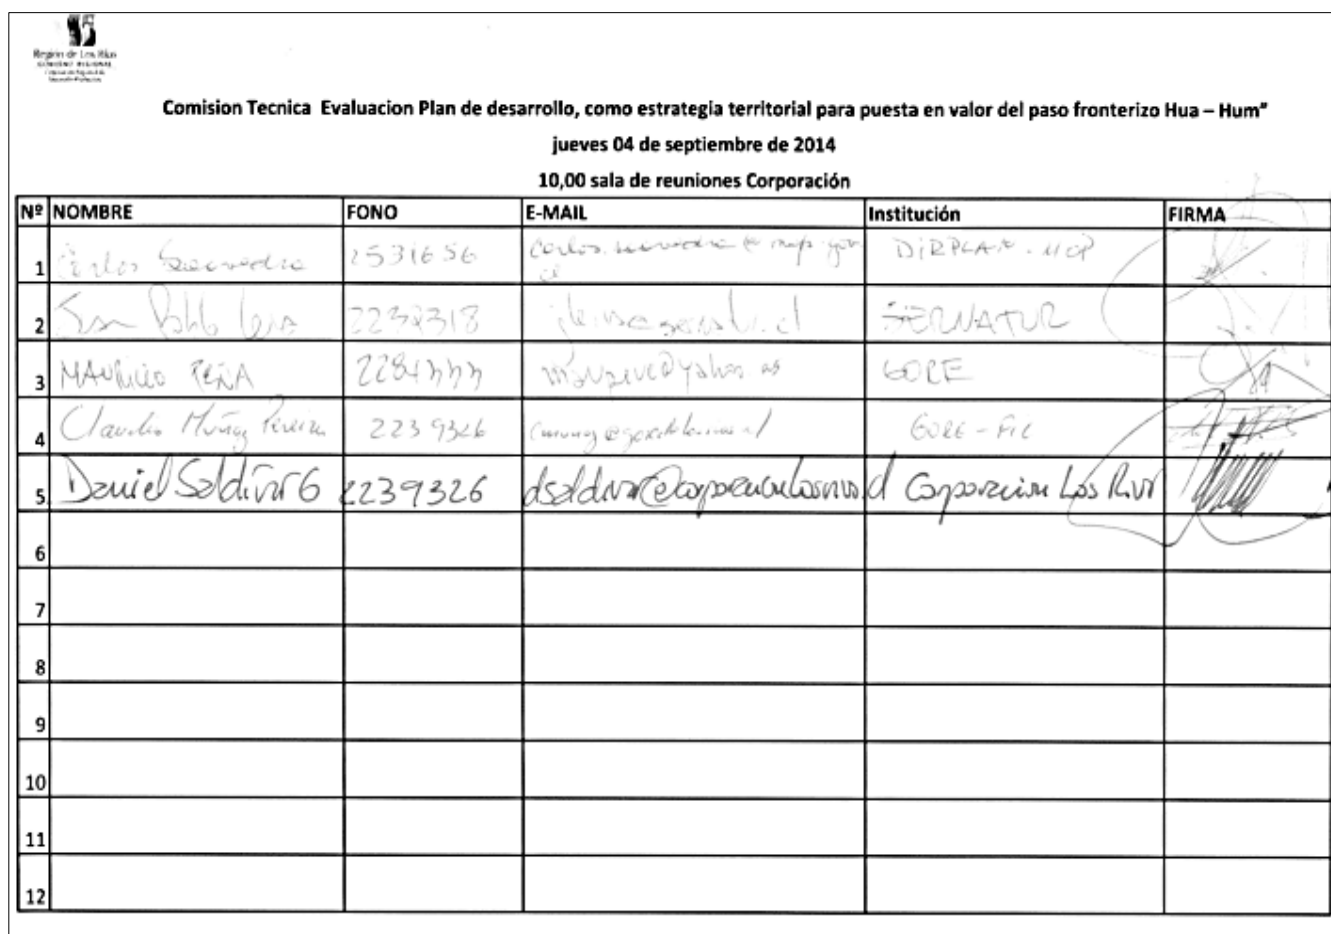 Región de Los Ríos
GOBIERNO REGIONAL
Comision Tecnica Evaluacion Plan de desarrollo, como estrategia territorial para puesta en valor del paso fronterizo Hua – Hum"
jueves 04 de septiembre de 2014
10,00 sala de reuniones Corporación
Nº NOMBRE FONO E-MAIL Institución FIRMA
1 Carlos Saavedra 2531656 DIRPLAN - MOP
2 Juan Pablo 2232318 SERNATUR
3 MAURICIO PEÑA GORE
4 Claudio Muñoz Pereira 2239326 GORE - FIC
5 Daniel Saldívar G 2239326 Corporacion Los Rios
6
7
8
9
10
11
12